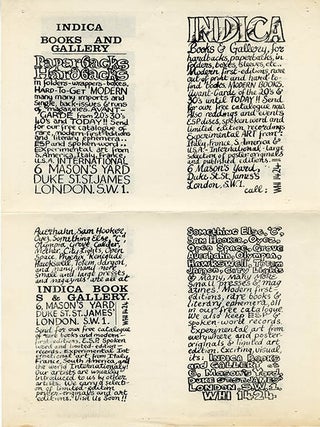 INDICA
BOOKS AND
GALLERY
Paperbacks
Hardbacks
in folders-wrappers-boxes
HARD-TO-GET MODERN
many many imports and
Single, back-issues & runs
of magazines. AVANT-
GARDE from 20's 30's
40's and TODAY!! Send
for our free catalogue on
rare, modern-first books
and literary ephemera.
ESP and spoken-word..
Experimental art from
S. America, Italy, France,
U.S.A. INTERNATIONAL
6 MASON'S YARD
DUKE ST. ST. JAMES
LONDON. S.W.1.
INDICA
Books & Gallery, for
handbacks, paperbacks, in
folders, boxes, sleeves, in
Modern first-editions, rare
out of print and hard-to-
find books. MODERN BOOKS.
Avant-Garde of the 20's &
30's until TODAY!! Send
for our free catalogue now.
Also readings and events
ESP discs, spoken word and
limited edition recordings
Experimental ART from
Italy, France, S. America &
U.S.A.- International-large
selection of poster-originals
and published editions.
6 Mason's Yard,
Duke St. St. James's
London, S.W.1.
call: WHI 1424
Auerhahn, Sam Hooker,
Oyez, Something Else, "C"
Olympia, Grove, Calder,
Mother, City Lights, Open
Space, Phoenix, Renegade
Hawkswell, Totem, Jargon
and many many more
Small private presses
and magazines are all at
INDICA BOOK
S & GALLERY.
6, MASON'S YARD
DUKE ST. ST. JAMES'
LONDON. S.W.1.
Send for our free catalogue
of rare books and modern-
first-editions, E.S.P. Spoken
word and limited-edition
records. Experimental Int-
ernational art from Italy,
France, South America, all
the world Internationally!
our artists are usually
introduced to us by other
artists. We carry a select-
ion of limited edition
poster-originals and art-
editions. Visit us soon!!
Something Else, "C",
Sam Hooker, Oyez,
Open Space, Grove
Auerhahn, Olympia,
Hawkswell, Totem
Jargon, City Lights
& Many, Many More
Small presses & mag
azines! Modern first-
editions, rare books &
literary ephemera, all
in our free catalogue
We also keep ESP &
spoken-word records
Experimental art from
everywhere and poster
originals & limited art
edition. Exciting, visual,
its: Indica Books
and Gallery @
6, Mason's Yard.
DUKE ST. ST. JAMES
LONDON. S.W.1.
WHI 1424.